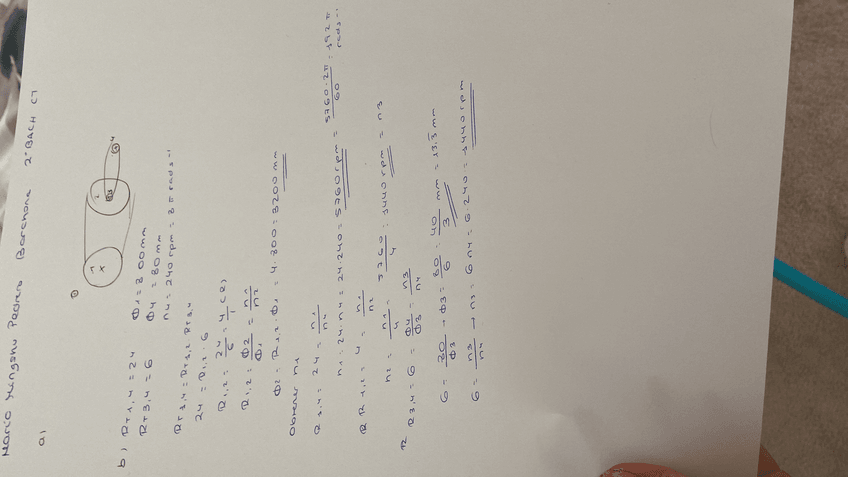 Mario Pedro Barchona 2ºBACH CT
a)
1 2 3 4
b) RT1,4 = 24 Φ1 = 800mm
RT3,4 = 6 Φ4 = 80mm
n4 = 240rpm = 8π rads⁻¹
RT1,4 = RT1,2 · RT3,4
24 = R1,2 · 6
R1,2 = 24/6 = 4/1 (R)
R1,2 = Φ2/Φ1 = n1/n2
Φ2 = R1,2 · Φ1 = 4 · 800 = 3200mm
Obtener n1
R1,4 = 24 = n1/n4
n1 = 24 · n4 = 24 · 240 = 5760rpm = 5760 · 2π/60 = 192π rads⁻¹
R R1,2 = 4 = n1/n2
n2 = n1/4 = 5760/4 = 1440rpm = n3
R R3,4 = 6 = Φ4/Φ3 = n3/n4
6 = 80/Φ3 → Φ3 = 80/6 = 40/3 mm = 13,3mm
6 = n3/n4 → n3 = 6 n4 = 6 · 240 = 1440rpm